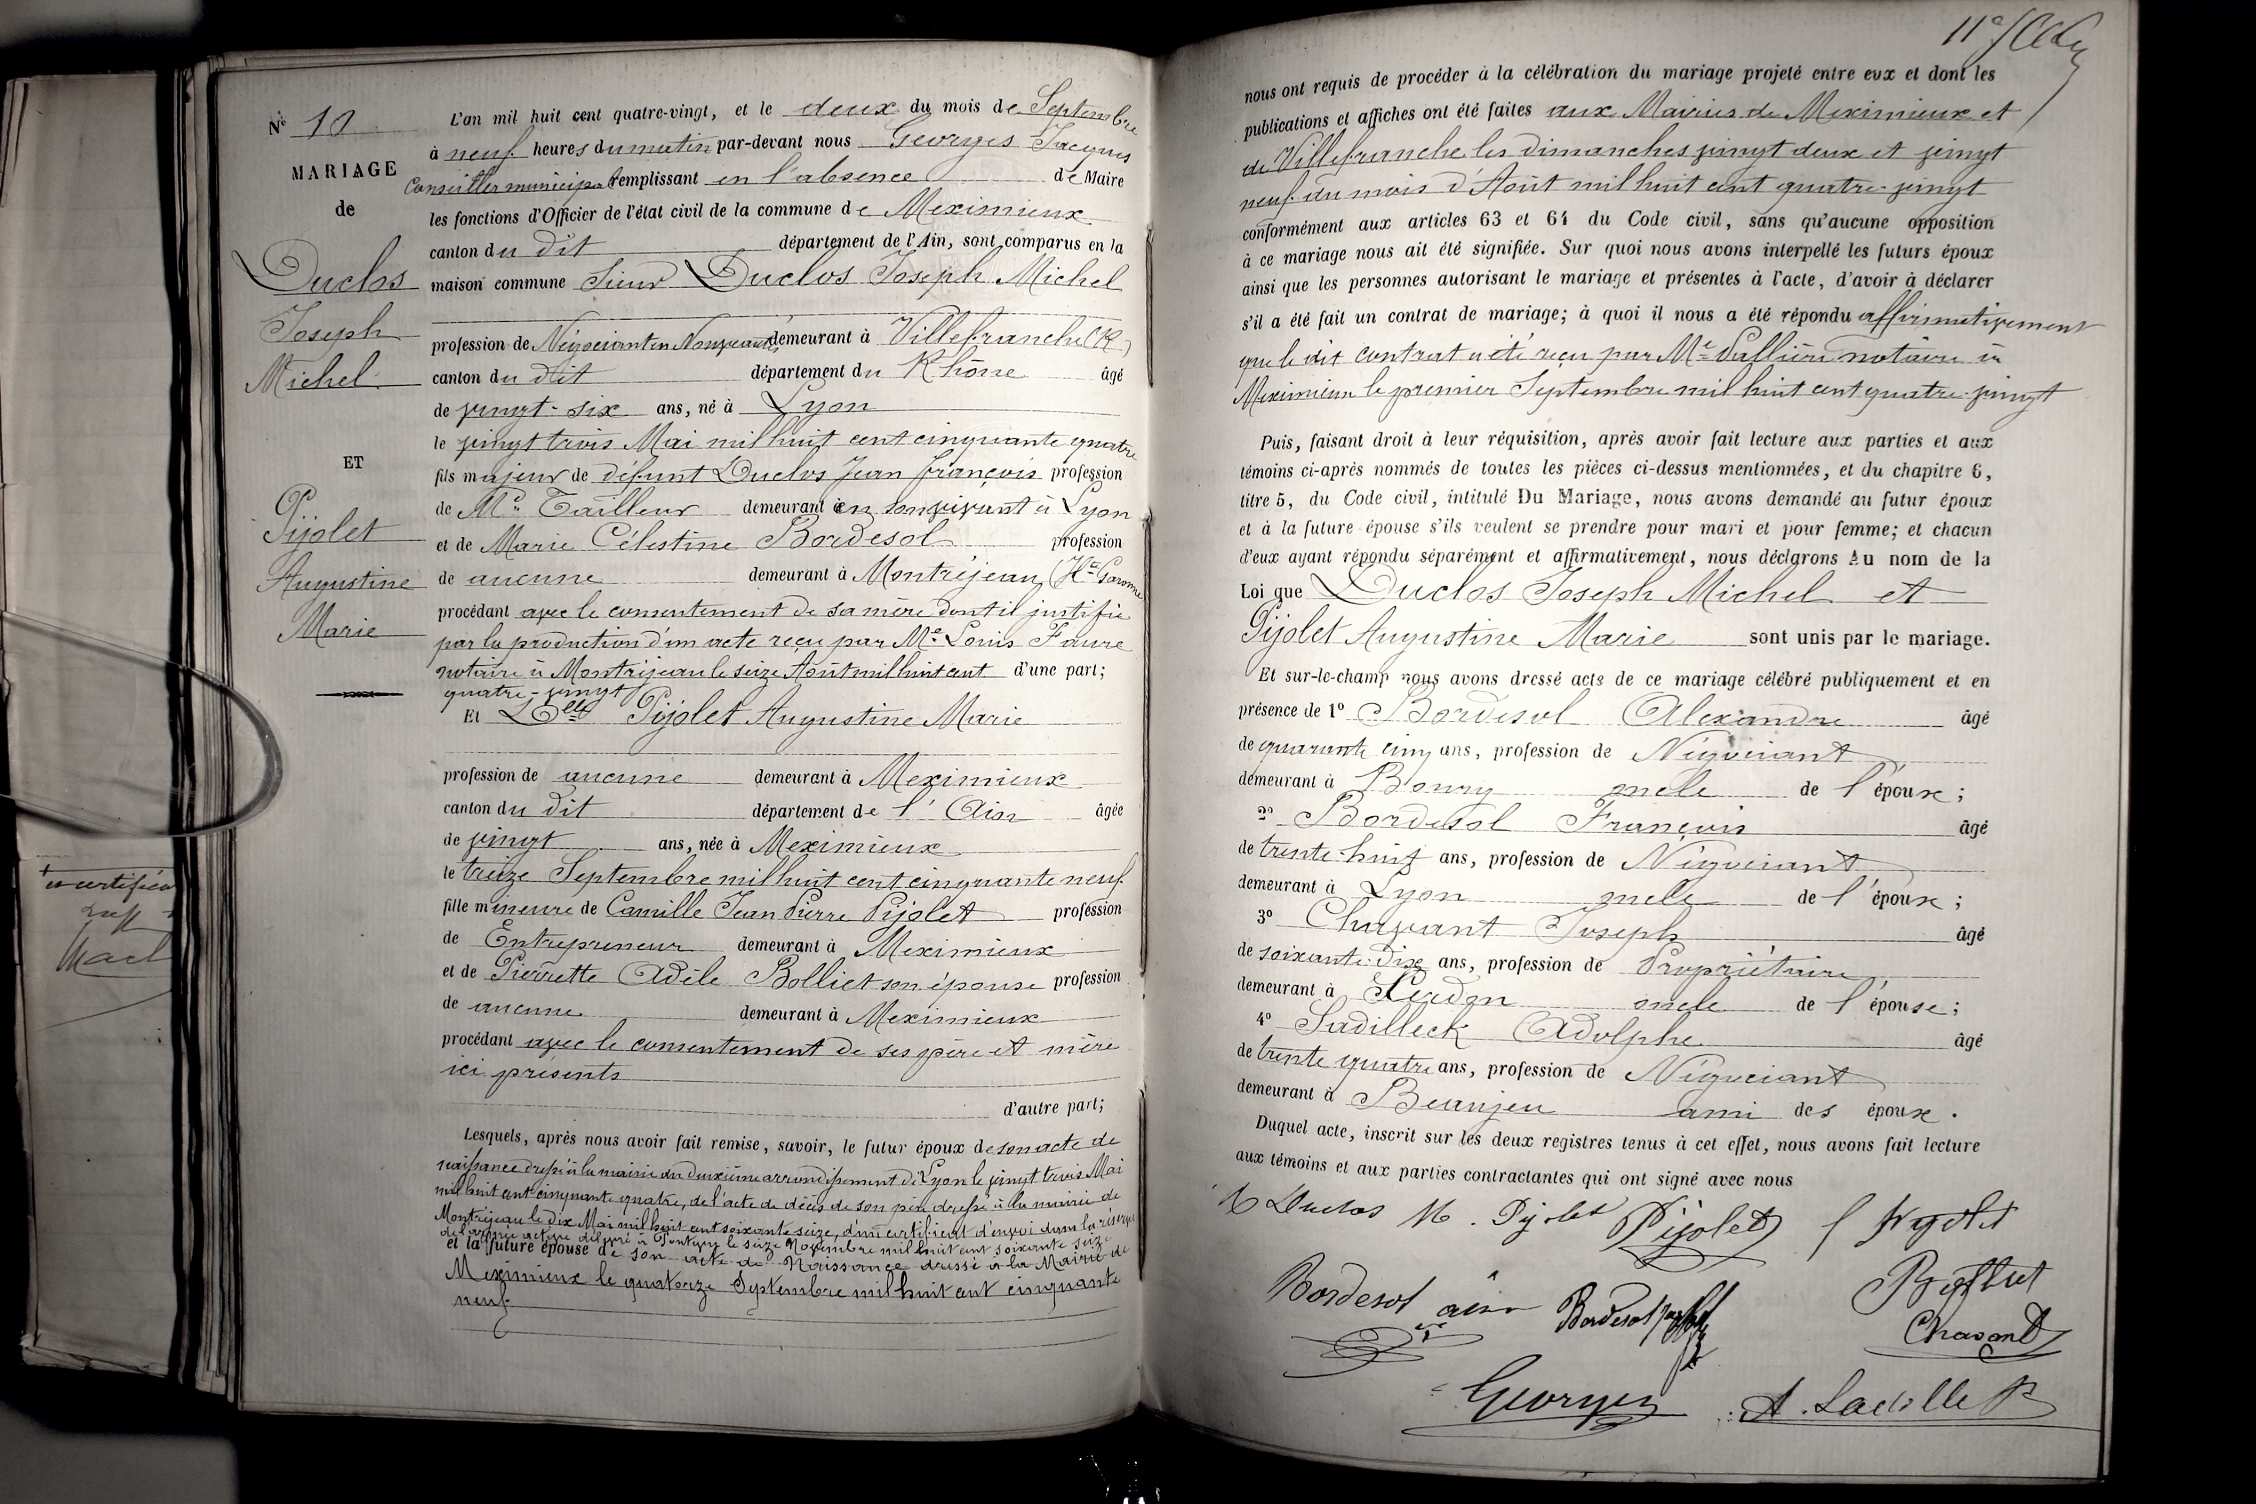 N° 10
MARIAGE
de
Duclos
Joseph
Michel
ET
Pijolet
Augustine
Marie
L'an mil huit cent quatre-vingt, et le deux du mois de Septembre
à neuf heures du matin par-devant nous Georges Jacques
Conseiller municipal remplissant en l'absence de Maire
les fonctions d'Officier de l'état civil de la commune de Meximieux
canton du dit département de l'Ain, sont comparus en la
maison commune Sieur Duclos Joseph Michel
profession de Négociant en Nouveautés demeurant à Villefranche (R)
canton du dit département du Rhône âgé
de vingt-six ans, né à Lyon
le vingt trois Mai mil huit cent cinquante quatre
fils majeur de défunt Duclos Jean François profession
de Md Tailleur demeurant en son vivant à Lyon
et de Marie Célestine Bordesol profession
de aucune demeurant à Montréjeau (Hte Garonne
procédant avec le consentement de sa mère dont il justifie
par la production d'un acte reçu par Me Louis Faure
notaire à Montréjeau le seize Août mil huit cent d'une part;
quatre-vingt
Et Delle Pijolet Augustine Marie
profession de aucune demeurant à Meximieux
canton du dit département de l'Ain âgée
de vingt ans, née à Meximieux
le treize Septembre mil huit cent cinquante neuf
fille mineure de Camille Jean Pierre Pijolet profession
de Entrepreneur demeurant à Meximieux
et de Pierrette Adèle Bolliet son épouse profession
de aucune demeurant à Meximieux
procédant avec le consentement de ses père et mère
ici présents
d'autre part;
Lesquels, après nous avoir fait remise, savoir, le futur époux de son acte de
naissance dressé à la mairie du deuxième arrondissement de Lyon le vingt trois Mai
mil huit cent cinquante quatre, de l'acte de décès de son père dressé à la mairie de
Montréjeau le dix Mai mil huit cent soixante seize, d'un certificat d'envoi dans la réserve
de l'armée active délivré à le seize Novembre mil huit cent soixante seize
et la future épouse de son acte de Naissance dressé à la Mairie de
Meximieux le quatorze Septembre mil huit cent cinquante
neuf
11e
nous ont requis de procéder à la célébration du mariage projeté entre eux et dont les
publications et affiches ont été faites aux Mairies de Meximieux et
de Villefranche les dimanches vingt deux et vingt
neuf du mois d'Août mil huit cent quatre-vingt
conformément aux articles 63 et 64 du Code civil, sans qu'aucune opposition
à ce mariage nous ait été signifiée. Sur quoi nous avons interpellé les futurs époux
ainsi que les personnes autorisant le mariage et présentes à l'acte, d'avoir à déclarer
s'il a été fait un contrat de mariage; à quoi il nous a été répondu affirmativement
que le dit contrat a été reçu par Me notaire à
Meximieux le premier Septembre mil huit cent quatre-vingt
Puis, faisant droit à leur réquisition, après avoir fait lecture aux parties et aux
témoins ci-après nommés de toutes les pièces ci-dessus mentionnées, et du chapitre 6,
titre 5, du Code civil, intitulé Du Mariage, nous avons demandé au futur époux
et à la future épouse s'ils veulent se prendre pour mari et pour femme; et chacun
d'eux ayant répondu séparément et affirmativement, nous déclarons Au nom de la
Loi que Duclos Joseph Michel et
Pijolet Augustine Marie sont unis par le mariage.
Et sur-le-champ nous avons dressé acte de ce mariage célébré publiquement et en
présence de 1° Bordesol Alexandre âgé
de quarante cinq ans, profession de Négociant
demeurant à Bourg oncle de l'époux;
2° Bordesol François âgé
de trente-huit ans, profession de Négociant
demeurant à Lyon oncle de l'époux;
3° Chavant Joseph âgé
de soixante-dix ans, profession de Propriétaire
demeurant à oncle de l'épouse;
4° Sadilleck Adolphe âgé
de trente quatre ans, profession de Négociant
demeurant à Beaujeu ami des époux.
Duquel acte, inscrit sur les deux registres tenus à cet effet, nous avons fait lecture
aux témoins et aux parties contractantes qui ont signé avec nous
Duclos M. Pijolet Pijolet Pijolet
Bordesol aîné Bordesol
Chavant
Georges A. Sadilleck